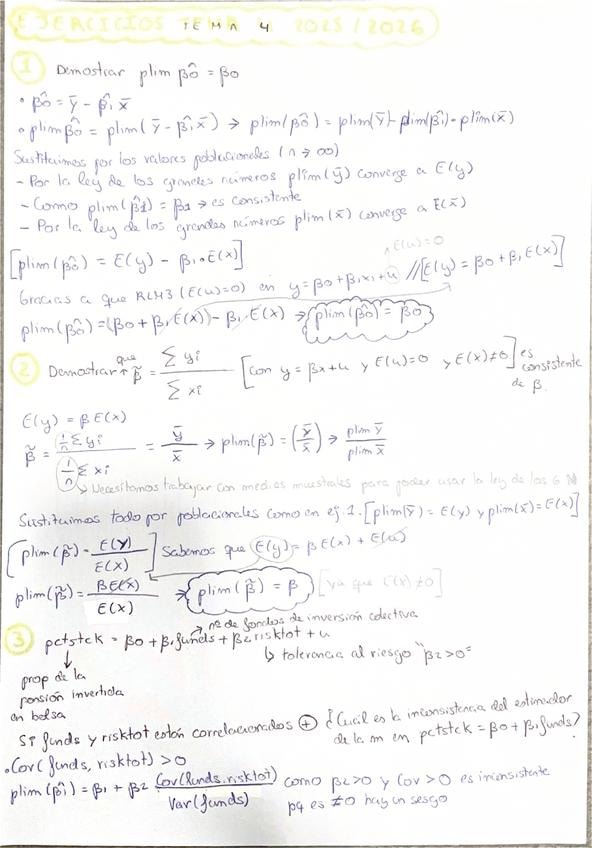 EJERCICIOS TEMA 4 2025/2026
1 Demostrar plim β̂0 = β0
• β̂0 = ȳ - β̂1 x̄
• plim β̂0 = plim (ȳ - β̂1 x̄) → plim(β̂0) = plim(ȳ) - plim(β̂1) • plim(x̄)
Sustituimos por los valores poblacionales (n → ∞)
- Por la ley de los grandes números plim(ȳ) converge a E(y)
- Como plim(β̂1) = β1 → es consistente
- Por la ley de los grandes números plim(x̄) converge a E(x̄)
[plim(β̂0) = E(y) - β1 • E(x)]
E(u) = 0
Gracias a que RLM3 (E(u)=0) en y = β0 + β1x1 + u // [E(y) = β0 + β1 E(x)]
plim(β̂0) = (β0 + β1 E(x)) - β1 E(x) ⇒ plim(β̂0) = β0
2 Demostrar que β̃ = Σ yi / Σ xi [con y = βx + u y E(u)=0 y E(x)≠0] es consistente de β.
E(y) = β E(x)
β̃ = 1/n Σ yi / 1/n Σ xi = ȳ / x̄ → plim(β̃) = (ȳ / x̄) → plim ȳ / plim x̄
↳ Necesitamos trabajar con medias muestrales para poder usar la ley de los G N
Sustituimos todo por poblacionales como en ej. 1. [plim(ȳ) = E(y) y plim(x̄) = E(x)]
[plim(β̃) = E(y) / E(x)] Sabemos que E(y) = β E(x) + E(u)
plim(β̃) = β E(x) / E(x) ⇒ plim(β̃) = β [ya que E(x) ≠ 0]
nº de fondos de inversión colectiva
3 pctstck = β0 + β1 funds + β2 risktot + u
↳ tolerancia al riesgo "β2 > 0"
prop de la
pensión invertida
en bolsa
Si funds y risktot están correlacionados + ¿Cuál es la inconsistencia del estimador
de la m en pctstck = β0 + β1 funds?
• Cov(funds, risktot) > 0
plim(β̂1) = β1 + β2 Cov(funds, risktot) / Var(funds) como β2 > 0 y Cov > 0 es inconsistente
pq es ≠ 0 hay un sesgo